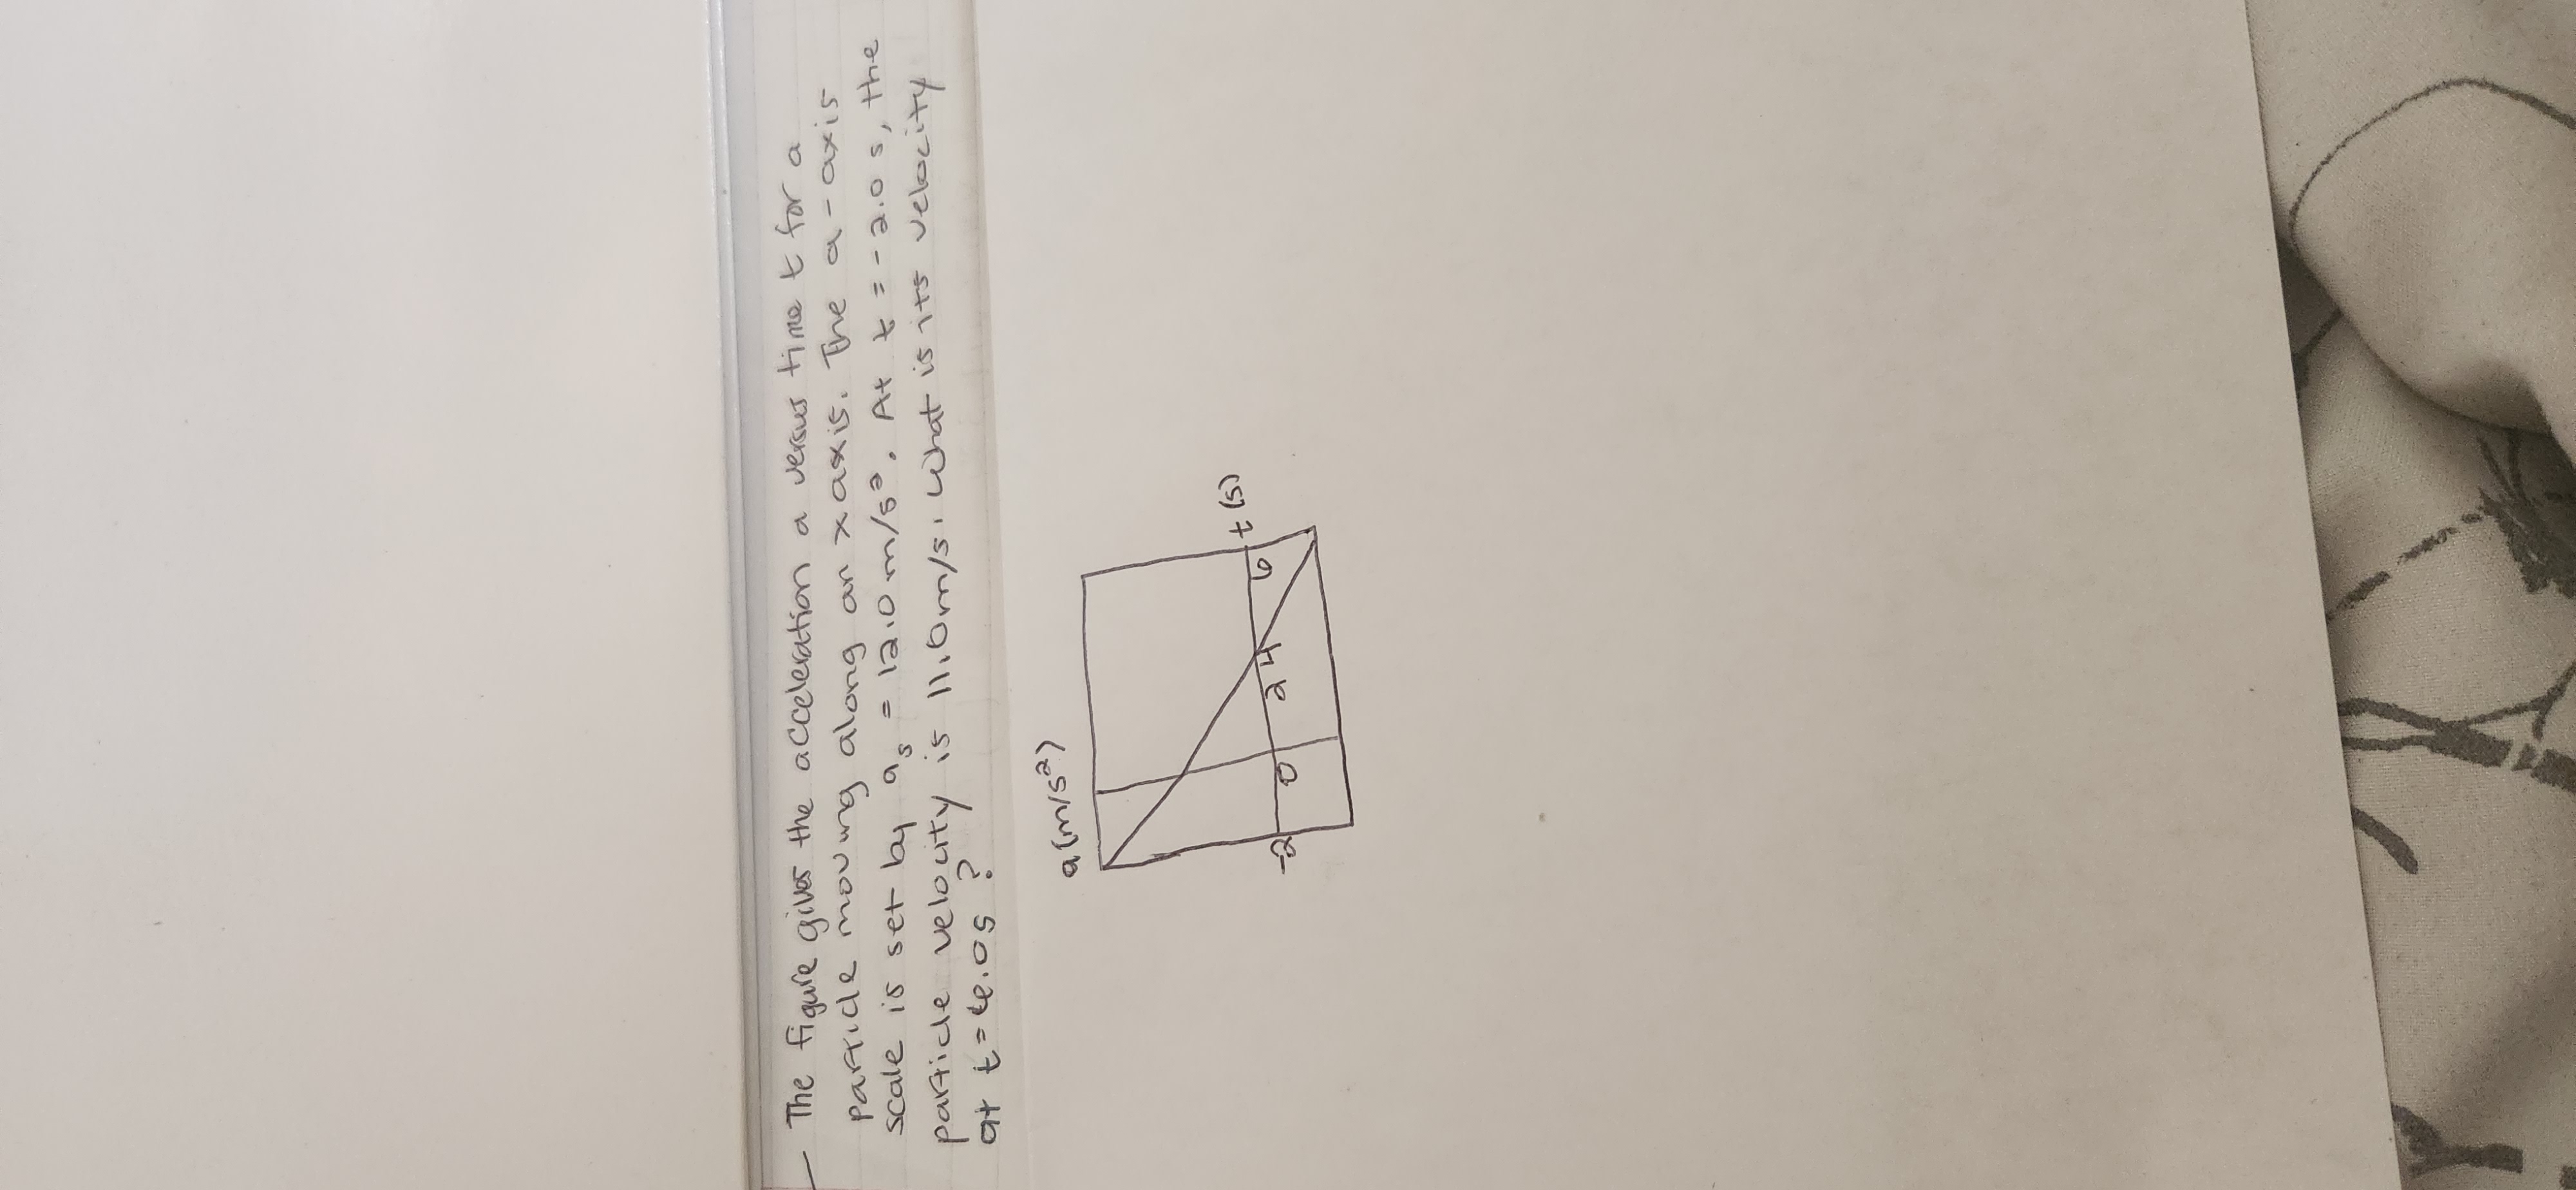 — The figure gives the acceleration a versus time t for a
particle moving along an x axis. The a-axis
scale is set by aₛ = 12.0 m/s². At t = -2.0 s, the
particle velocity is 11.0 m/s. What is its velocity
at t = 6.0s ?
a(m/s²)
-2 0 2 4 6 t (s)